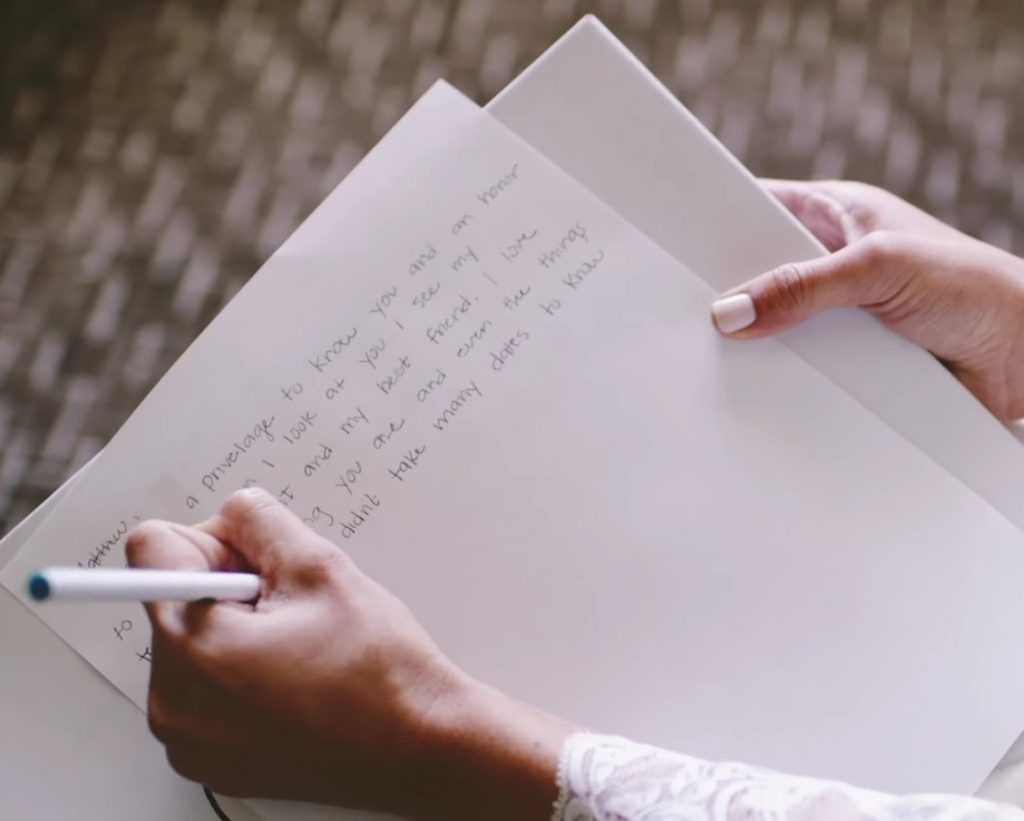 Matthew,
a privelage to know you and an honor
to I look at you I see my
and my best friend. I love
you are and even the things
didnt take many dates to know